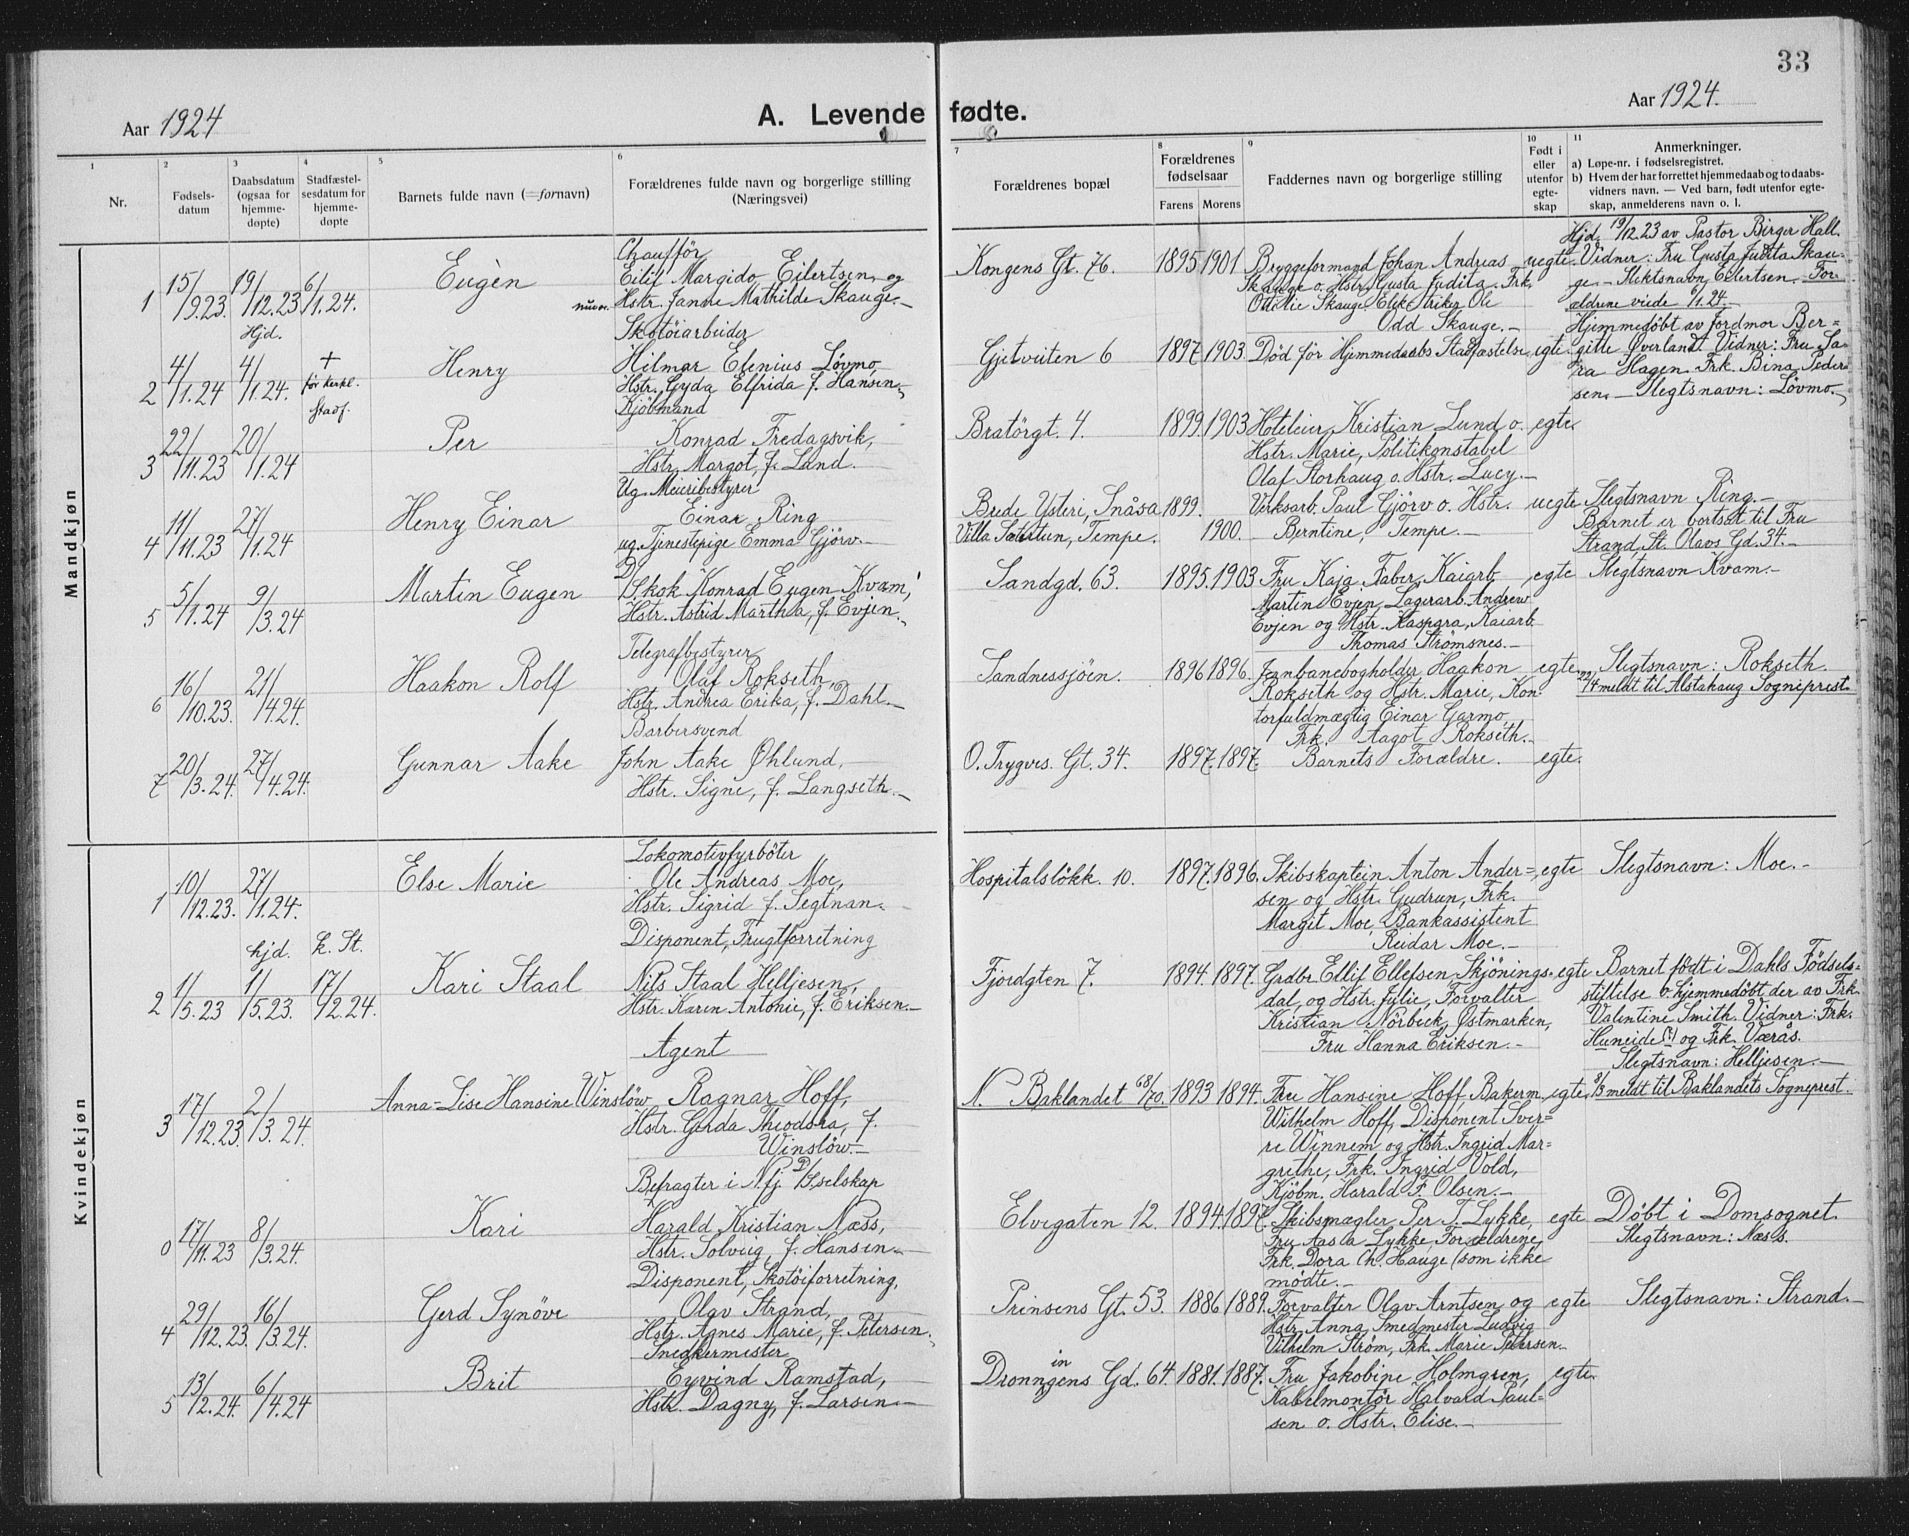 33
Aar 1924
A. Levende fødte.
Aar 1924.
1 Nr.
2 Fødsels-datum
3 Daabsdatum (ogsaa for hjemme-døpte)
4 Stadfæstel-sesdatum for hjemme-døpte
5 Barnets fulde navn (=fornavn)
6 Forældrenes fulde navn og borgerlige stilling (Næringsvei)
7 Forældrenes bopæl
8 Forældrenes fødselsaar
Farens Morens
9 Faddernes navn og borgerlige stilling
10 Født i eller utenfor egte-skap
11 Anmerkninger.
a) Løpe-nr. i fødselsregistret.
b) Hvem der har forrettet hjemmedaab og to daabs-vidners navn. — Ved barn, født utenfor egte-skap, anmelderens navn o. l.
Mandkjøn
1 15/9.23 19/12.23 Hjd. 6/1.24. Eugèn
Chaufför
Eilif Margido Eilertsen og
nuv. Hstr. Janne Mathilde Skauge.—
Kongens Gt. 76. 1895 1901
Bryggeformand Johan Andreas
Skauge o. Hstr. Gusta Judita. Frk.
Ottilie Skauge. Elektriker Ole
Odd Skauge.—
uegte.
Hjd. 19/12.23 av Pastor Birger Hall.
Vidner: Fru Gusta Judita Skau-
ge.— Slektsnavn Eilertsen. For-
ældrene viede 6/1.24.—
2 4/1.24 4/1.24. + før kerkl. stadf. Henry
Skotöiarbeider
Hilmar Elenius Lövmo,
Hstr. Gyda Elfrida f. Hansen.—
Gjetveiten 6 1897. 1903.
Död för Hjemmedaabs Stadfæstelse
egte.
Hjemmedöbt av Jordmor Ber=
gitte Øverland. Vidner: Fru Sa-
ra Hagen. Frk. Bina Peder-
sen.— Slegtsnavn: Lövmo.—
3 22/11.23 20/1.24 Per
Kjöbmand
Konrad Fredagsvik,
Hstr. Margot, f. Lund.
Bratörgt. 4. 1899. 1903
Hoteleier Kristian Lund o.
Hstr. Marie, Politikonstabel
Olaf Storhaug o. Hstr. Lucy.—
egte.
4 11/11.23 27/1.24 Henry Einar
Ug. Meieribestyrer
Einar Ring
ug. Tjenestepige Emma Gjörv.—
Brede Ysteri, Snåsa 1899.
Villa Sætertun, Tempe. 1900.
Verksarb. Paul Gjörv o. Hstr.
Berntine, Tempe.—
uegte
Slegtsnavn Ring.—
Barnet er bortsat til Fru
Strand, St. Olavs Gd. 34.—
5 5/1.24 9/3.24 Martin Eugen
D/S. kok Konrad Eugen Kvam,
Hstr. Astrid Marthea, f. Evjen.—
Sandgd. 63. 1895. 1903
Fru Kaja Faber, Kaiarb.
Martin Evjen, Lagerarb. Andrew
Evjen og Hstr. Kaspara, Kaiarb.
Thomas Strömsnes.—
egte
Slegtsnavn Kvam.—
6 16/10.23. 21/4.24. Haakon Rolf
Telegrafbestyrer
Olaf Rokseth,
Hstr. Andrea Erika, f. Dahl.—
Sandnessjöen. 1896 1896.
Jernbanebogholder Haakon
Rokseth og Hstr. Marie, Kon
torfuldmægtig Einar Garmo,
Frk. Aagot Rokseth.—
egte
Slegtsnavn: Rokseth.
22/4 meldt til Alstahaug Sogneprest.
7 20/3.24. 27/4.24. Gunnar Aake
Barbersvend
John Aake Øhlund,
Hstr. Signe, f. Langseth.—
O. Trygves. Gt. 34. 1897. 1897.
Barnets Forældre.
egte.
Kvindekjøn
1 10/12.23. 27/1.24. Else Marie
Lokomotivfyrböter
Ole Andreas Moe,
Hstr. Sigrid f. Segtnan.—
Hospitalslökk. 10. 1897. 1896.
Skibskaptein Anton Ander=
sen og Hstr. Gudrun, Frk.
Margit Moe, Bankassistent
Reidar Moe.—
egte
Slegtsnavn: Moe.—
2 1/5.23 hjd. 1/5.23. k. St. 17/2.24. Kari Staal
Disponent, Frugtforretning
Nils Staal Helljesen,
Hstr. Karen Antonie, f. Eriksen.—
Fjordgten 7. 1894. 1897.
Grdbr. Ellif Ellefsen Skjönings=
dal, og Hstr. Jylie, Forvalter
Kristian Nörbeck, Østmarken,
Fru Hanna Eriksen.—
egte
Barnet födt i Dahls Födsels=
stiftelse o. hjemmedöbt der av Frk.
Valentine Smith. Vidner: Frk.
Huneide (?) og Frk. Værås.
Slegtsnavn: Helljesen.—
3 17/12.23. 2/3.24. Anna-Lise Hansine Winslöw
Agent
Ragnar Hoff,
Hstr. Gerda Theodora, f.
Winslöw.—
N. Baklandet 68/70 1893 1894.
Fru Hansine Hoff, Bakerm.
Wilhelm Hoff, Disponent Sver-
re Winnem og Hstr. Ingrid Mar=
grethe, Frk. Ingrid Vold,
Kjöbm. Harald F. Olsen.—
egte.
8/3 meldt til Baklandets Sogneprest.
0 17/11.23 8/3.24. Kari
Befragter i Nfj. D/S. selskap
Harald Kristian Næss,
Hstr. Solveig, f. Hansen.—
Elvegaten 12. 1894. 1897.
Skibsmægler Per T. Lykke,
Fru Aasla Lykke, Forældrene,
Frk. Dora Ch. Hauge (som ikke
mödte.—
egte
Döbt i Domsognet.
Slegtsnavn: Næss.
4 29/12.23. 16/3.24. Gerd Synöve
Disponent, Skotöiforretning.
Olav Strand,
Hstr. Agnes Marie, f. Petersen.—
Prinsens Gt. 53. 1886 1889.
Forvalter Olav Arntsen og
Hstr. Anna, Smedmester Ludvig
Vilhelm Ström, Frk. Marie Petersen.—
egte
Slegtsnavn: Strand.—
5 13/2.24. 6/4.24 Brit
Snedkermester
Eyvind Ramstad,
Hstr. Dagny, f. Larsen.—
Dronningens Gd. 64. 1881. 1887.
Fru Jakobine Holmgren,
Kabelmontör Halvard Paul-
sen o. Hstr. Elise.—
egte.